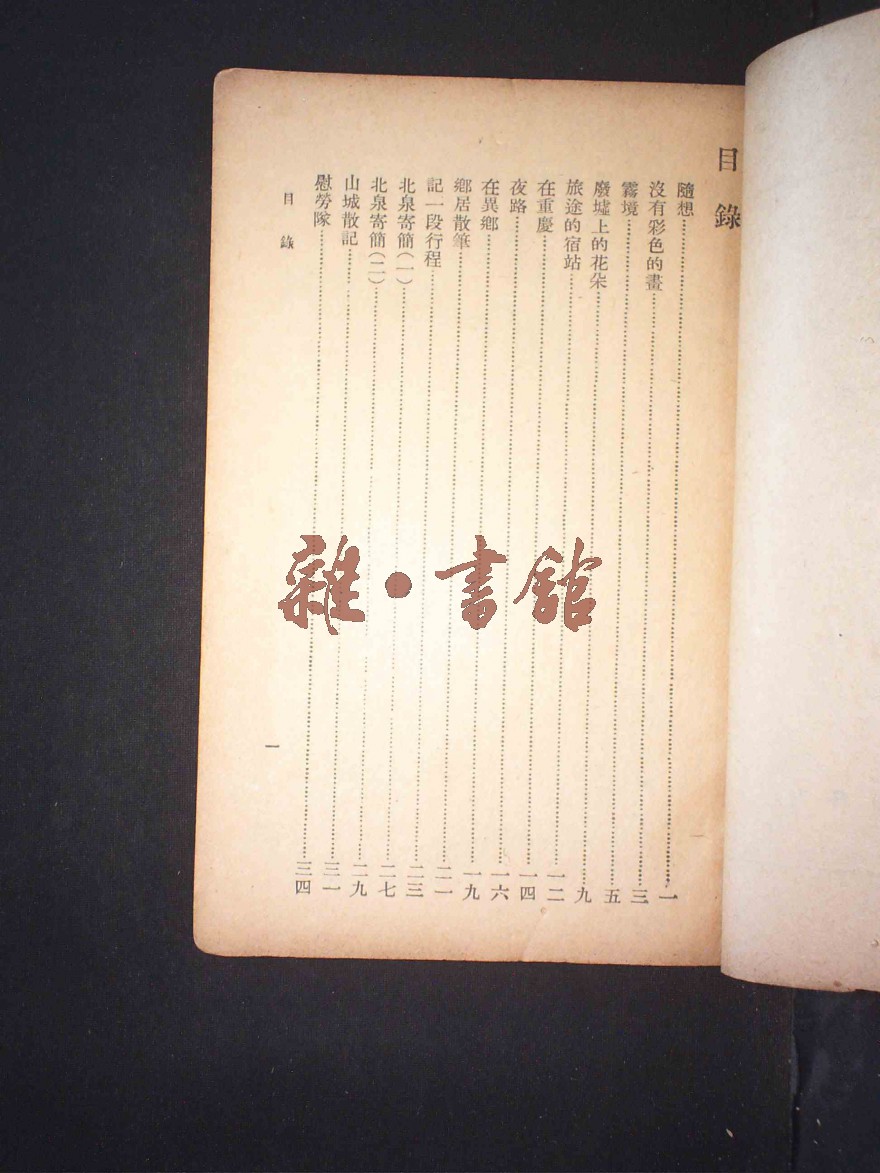 目錄
隨想……一
沒有彩色的畫……三
霧境……五
廢墟上的花朵……九
旅途的宿站……一二
在重慶……一四
夜路……一六
在異鄉……一九
鄉居散筆……二一
記一段行程……二三
北泉寄簡(一)……二七
北泉寄簡(二)……二九
山城散記……三一
慰勞隊……三四
目錄
一
雜·書館